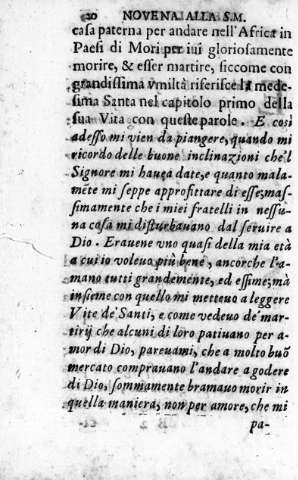 20 NOVENA ALLA S.M.
casa paterna per andare nell'Africa in
Paesi di Mori per iui gloriosamente
morire, & esser martire, siccome con
grandissima vmiltà riferisce la mede-
sima Santa nel capitolo primo della
sua Vita con queste parole. E così
adesso mi vien da piangere, quando mi
ricordo delle buone inclinazioni che'l
Signore mi hauea date, e quanto mala-
mēte mi seppe approfittare di esse; mas-
simamente che i miei fratelli in nessu-
na cosa mi disturbauano dal seruire a
Dio. Erauene vno quasi della mia età
a cui io voleuo più bene, ancorche l'a-
mano tutti grandemente, ed essi me; mà
insieme con quello mi metteuo a leggere
Vite de' Santi, e come vedeuo de' mar-
tirij che alcuni di loro patiuano per a-
mor di Dio, pareuami, che a molto buō
mercato comprauano l'andare a godere
di Dio, sommamente bramauo morir in
quella maniera, non per amore, che mi
pa-